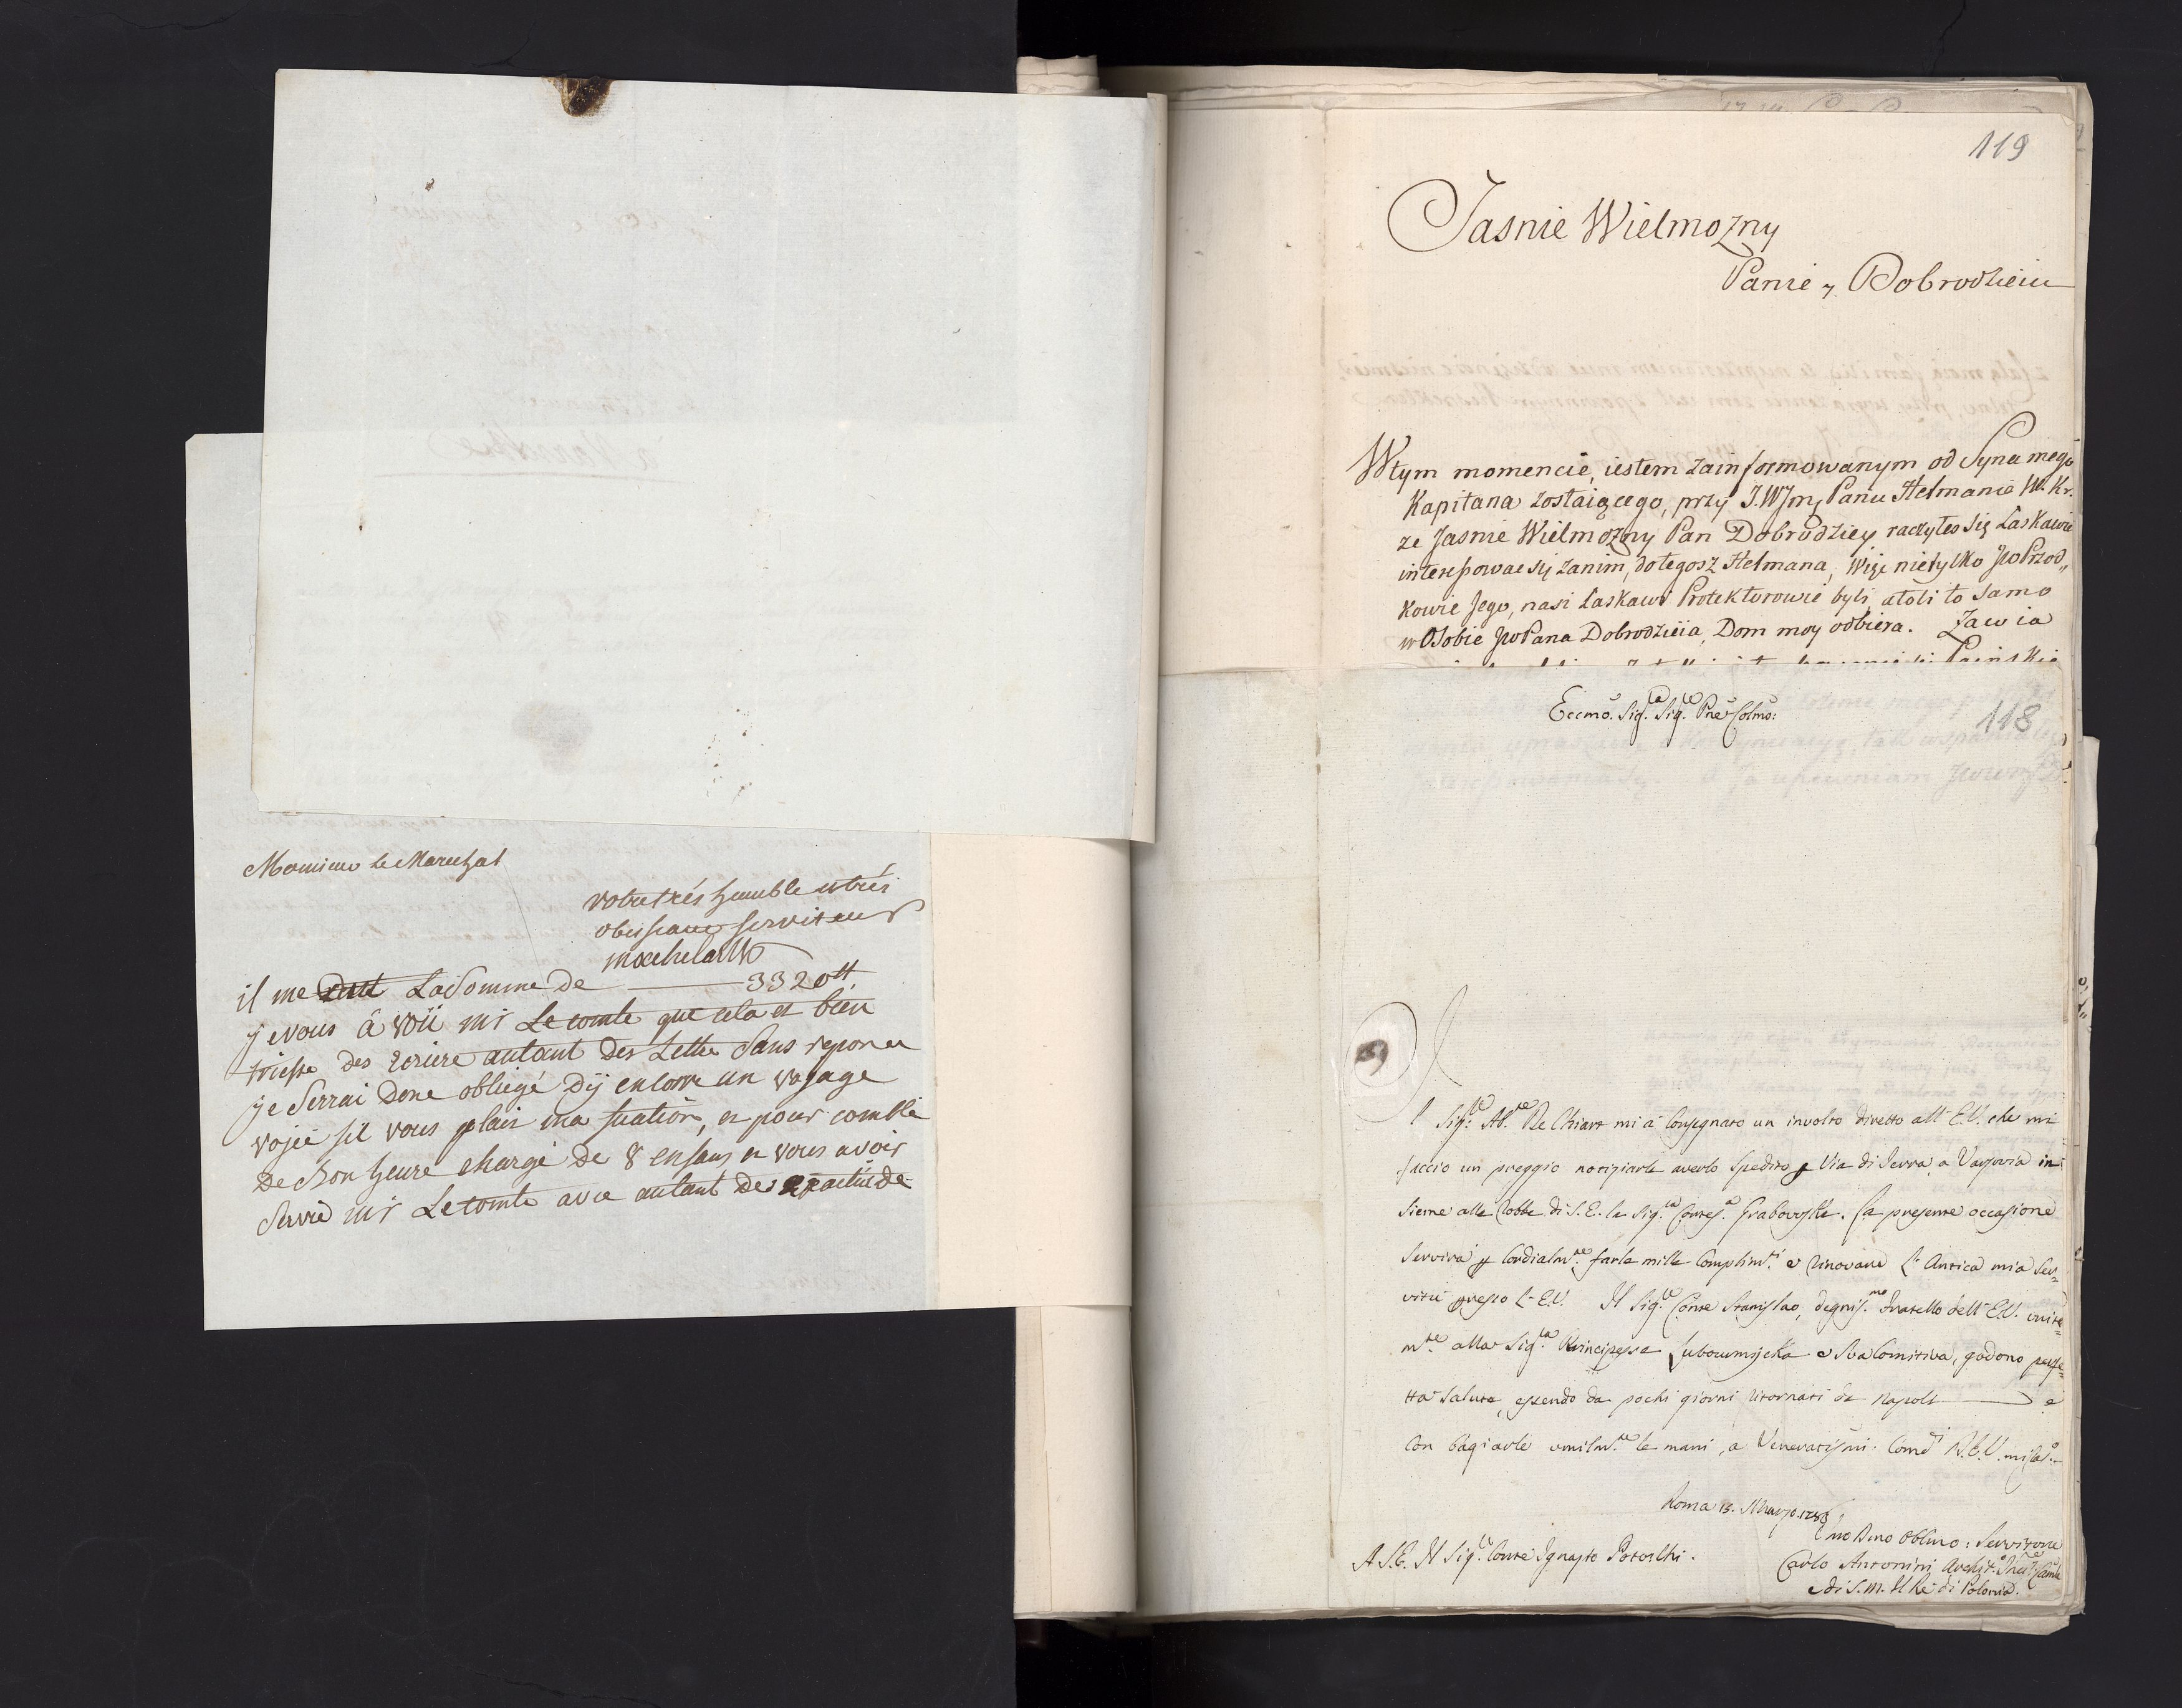 Monsieur le Marechal
votre trés humble et trés
obeissant serviteur
il me dut La Somme de ——— 3320 tt
je vous â voü mr Le comte que cela et bien
trieste des ecriere autant des Lettre Sans repon
je Serrai Donc obliegé dÿ encorre un voyage
vojéé sil vous plais ma suation, et pour comble
De Bonheure chargé de 8 enfans et vous avoir
Servië mr Le comte avec autant des exactiude
119
Jasnie Wielmozny
Panie y Dobrodzieiu
Wtym momencie, iestem zainformowanym od Syna mego
Kapitana zostaiącego, przy J. W Jmy Panu Hetmanie W. Kr.
ze Jasnie Wielmozny Pan Dobrodziey raczyłes Się Łaskawie
interessowae się zanim, do tegosz Hetmana, Więc nietylko JWPrzod„
kowie Jego, nasi Łaskawi Protektorowie byli, atoli to samo
w Osobie JWPana Dobrodzieia, Dom moy odbiera. Za w ia
Eccmo. Sig.re Sig.re Pne Colmo:
118
Il Sig.re Ab.te De Chiart mi à Consegnato un involto diretto all' E.V. che mi
faccio un preggio notiziarle averlo spedito p Via di Terra, a Varsovia in
sieme alle Robbe di S.E. la Sig.ra Contes.a Grabovska. La presente occasione
servirà p Cordialm.te farle mille Complim.ti e rinovare L'Antica mia Ser=
vitù presso L'E.V. Il Sig.re Conte Stanislao, degnis.mo Fratello dell' E.V. unita=
m.te alla Sig.ra Principessa Lubomirska e Sua Comitiva, godono perfe=
tta Salute, essendo da pochi giorni ritornati da Napoli ——— e
Con bagiarle umilm.te le mani, a Veneratissimi Comdi R.E.V. mi
Roma 15. Marzo 1786
Umo Dmo Obblmo: Servitore
Carlo Antonini Archit.o
e di S.M. Il Re di Polonia.
A S.E. Il Sig.re Conte Ignazio Potoschi.